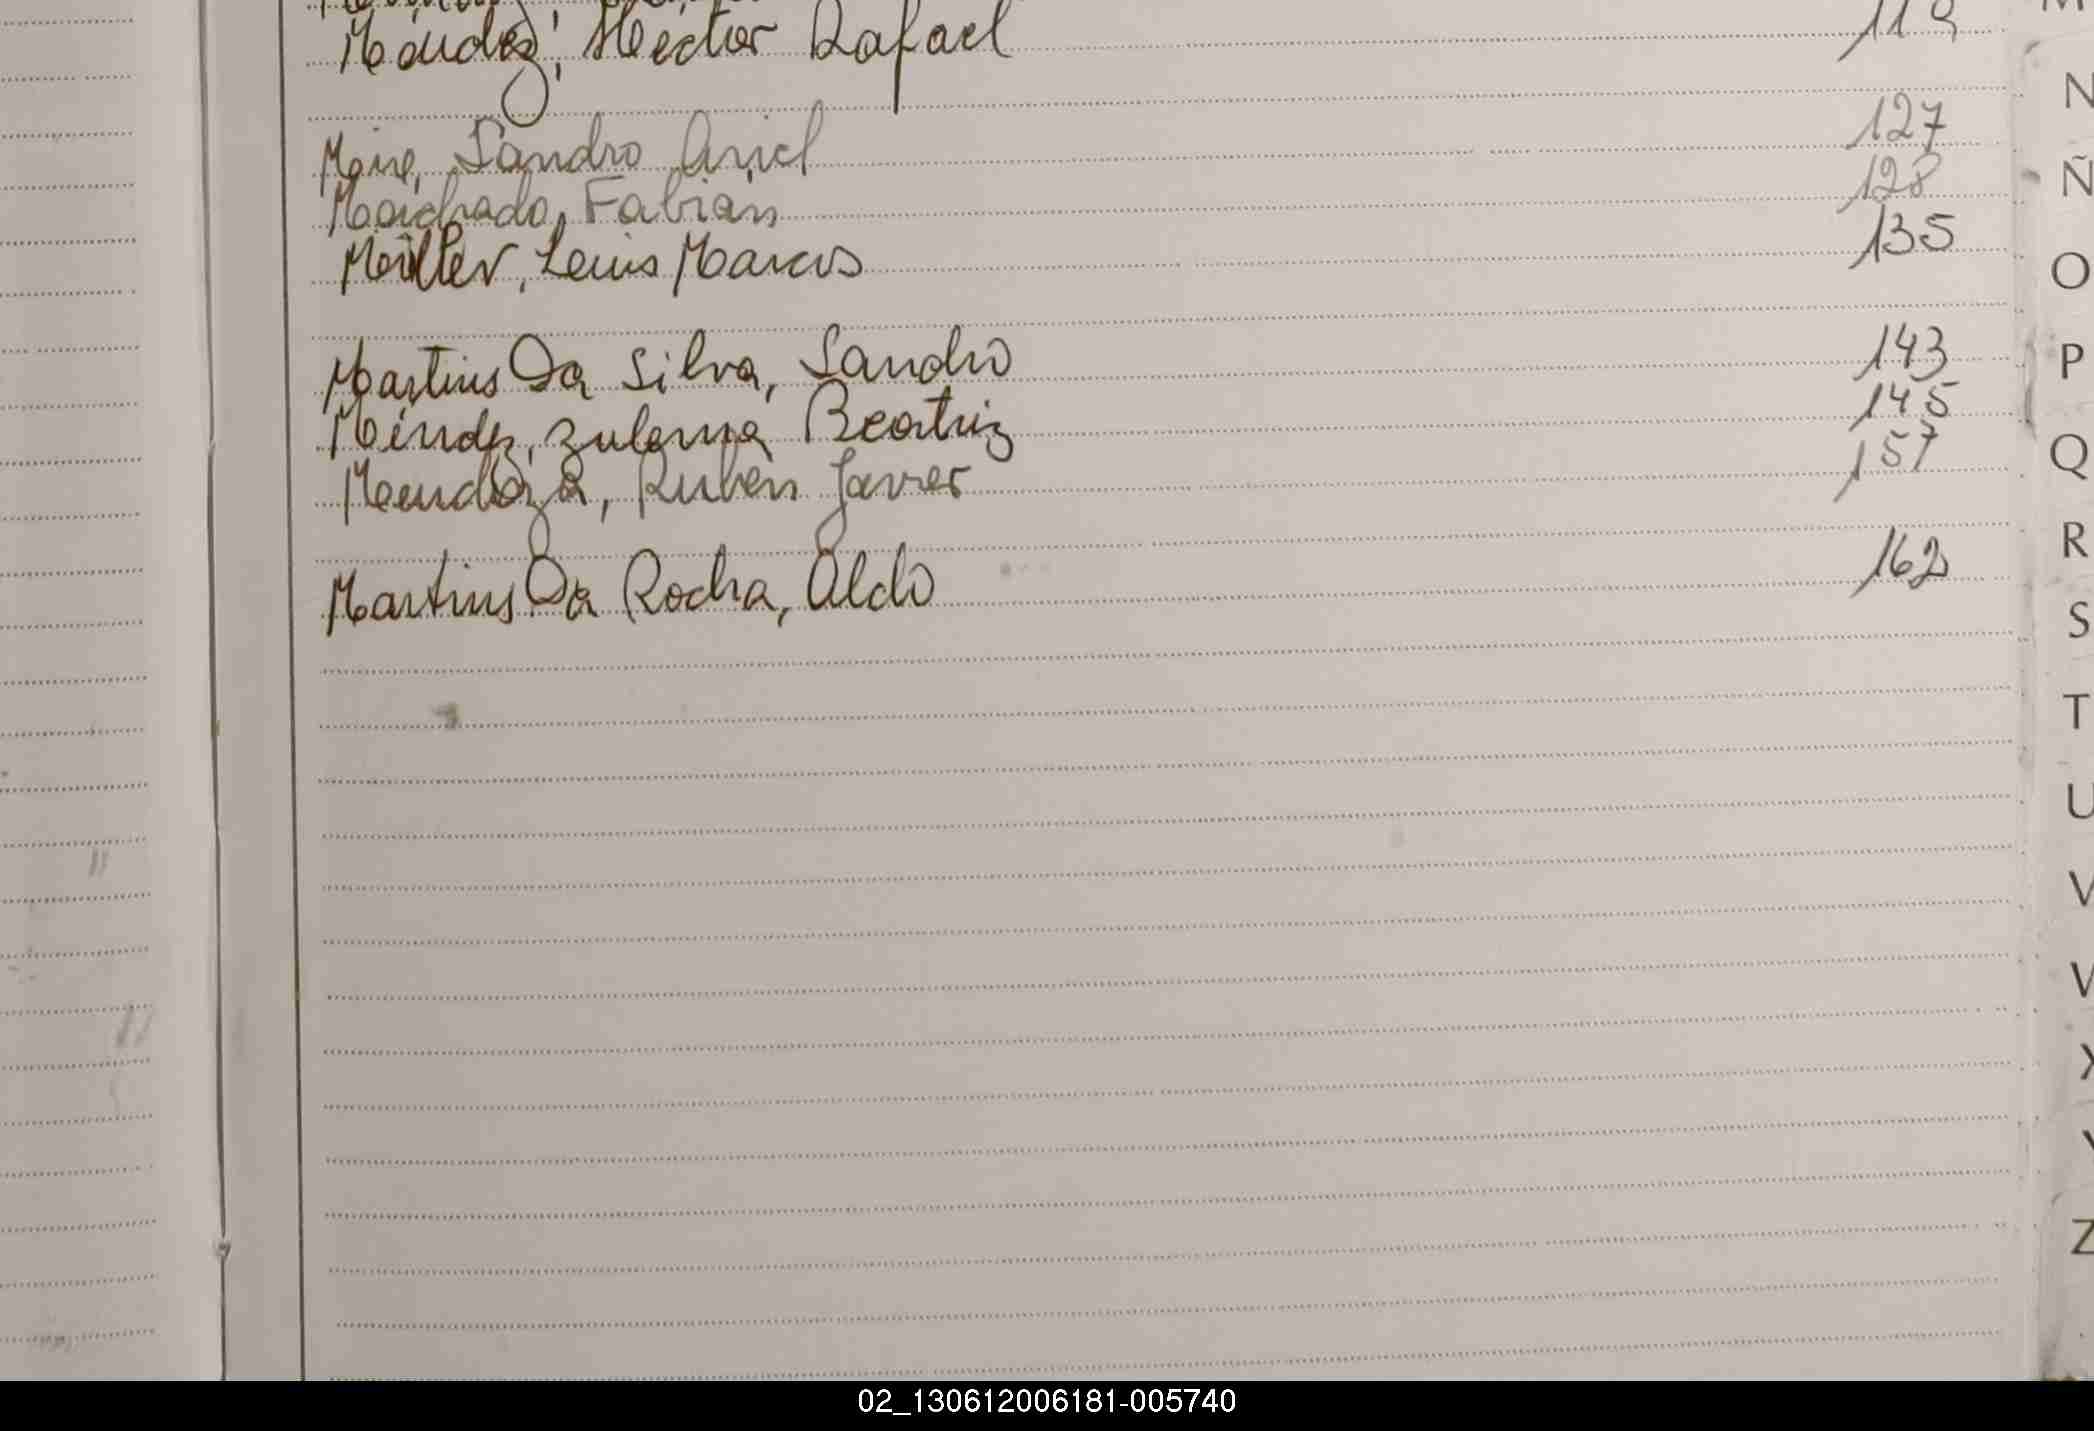 Méndez, Hector Rafael 119
Maine, Sandro Ariel 127
Machado, Fabián 128
Müller, Luis Marcos 135
Martins Da Silva, Sandro 143
Méndez, Zulema Beatriz 145
Mendoza, Rubén Javier 157
Martins Da Rocha, Aldo 162
N
Ñ
O
P
Q
R
S
T
U
V
X
Y
Z
02_130612006181-005740